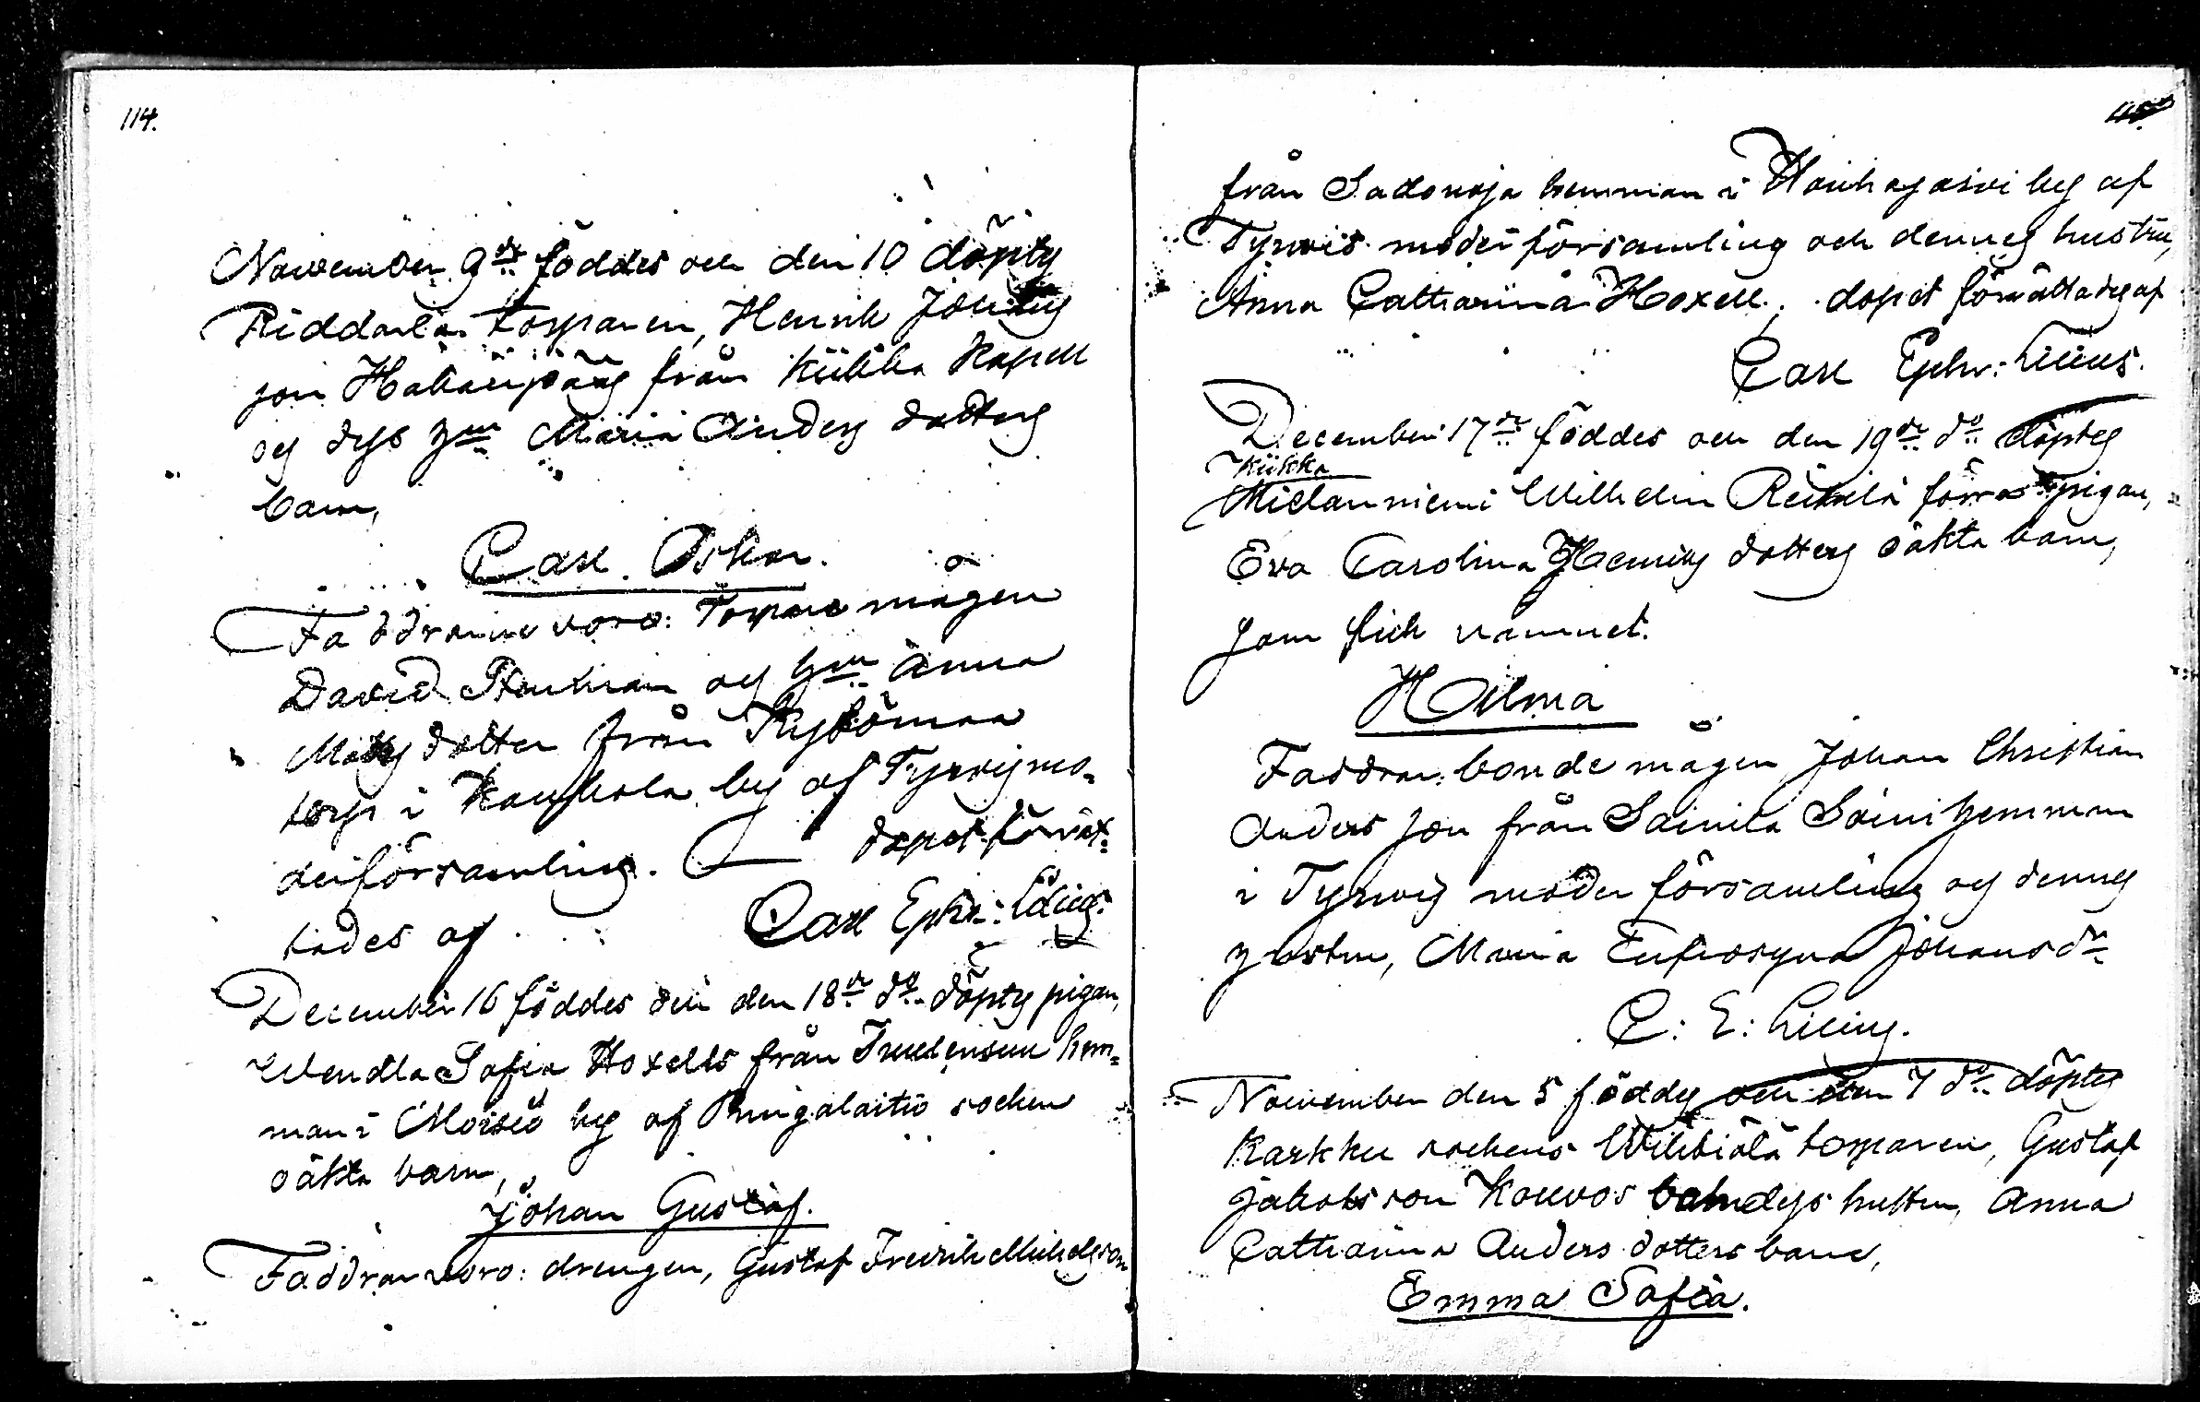 114.
November 9de föddes och den 10 döptes
Riddarla torparen, Henrik Johans
son Hakanpääs från Kiikka Kapell
og dess hm Maria Anders dotters
barn,
Carl Oskar.
Faddrarne voro: Torpare mågen
David Stenman og hm Anna
Matts dotter från
torp i by af Tyrvis mo-
derförsamling. dopet förrät-
tades af Carl Ephr: Lilius.
December 16 föddes och den 18de do döptes pigan,
Wendla Sofia Hoxells från hem-
man i Moisio by af Pungalaitio socken
oäkta barn,
Johan Gustaf.
Faddrar voro: drengen, Gustaf Fredrik Michelsson
115
från Sadonoja hemman i by af
Tyrvis moderförsamling och dennes hustru,
Anna Catharina Hoxell, dopet förrättades af
Carl Ephr: Lilius.
December 17de föddes och den 19de do döptes
Kiikka
Mielanniemi Wilhelm Reikilä förra pigan,
Eva Carolina Henriks dotters oäkta barn,
som fick namnet.
Hilma
Faddrar: bonde mågen Johan Christian
Anders son från Sainila Saini hemman
i Tyrvis moder församling og dennes
hustru, Maria Eufrosyna Johans dr
C: E: Lilius.
November den 5 föddes och den 7 do döptes
Karkku sockens torparen, Gustaf
Jakobsson Kouvos och dess hustru, Anna
Catharina Anders dotters barn,
Emma Sofia.